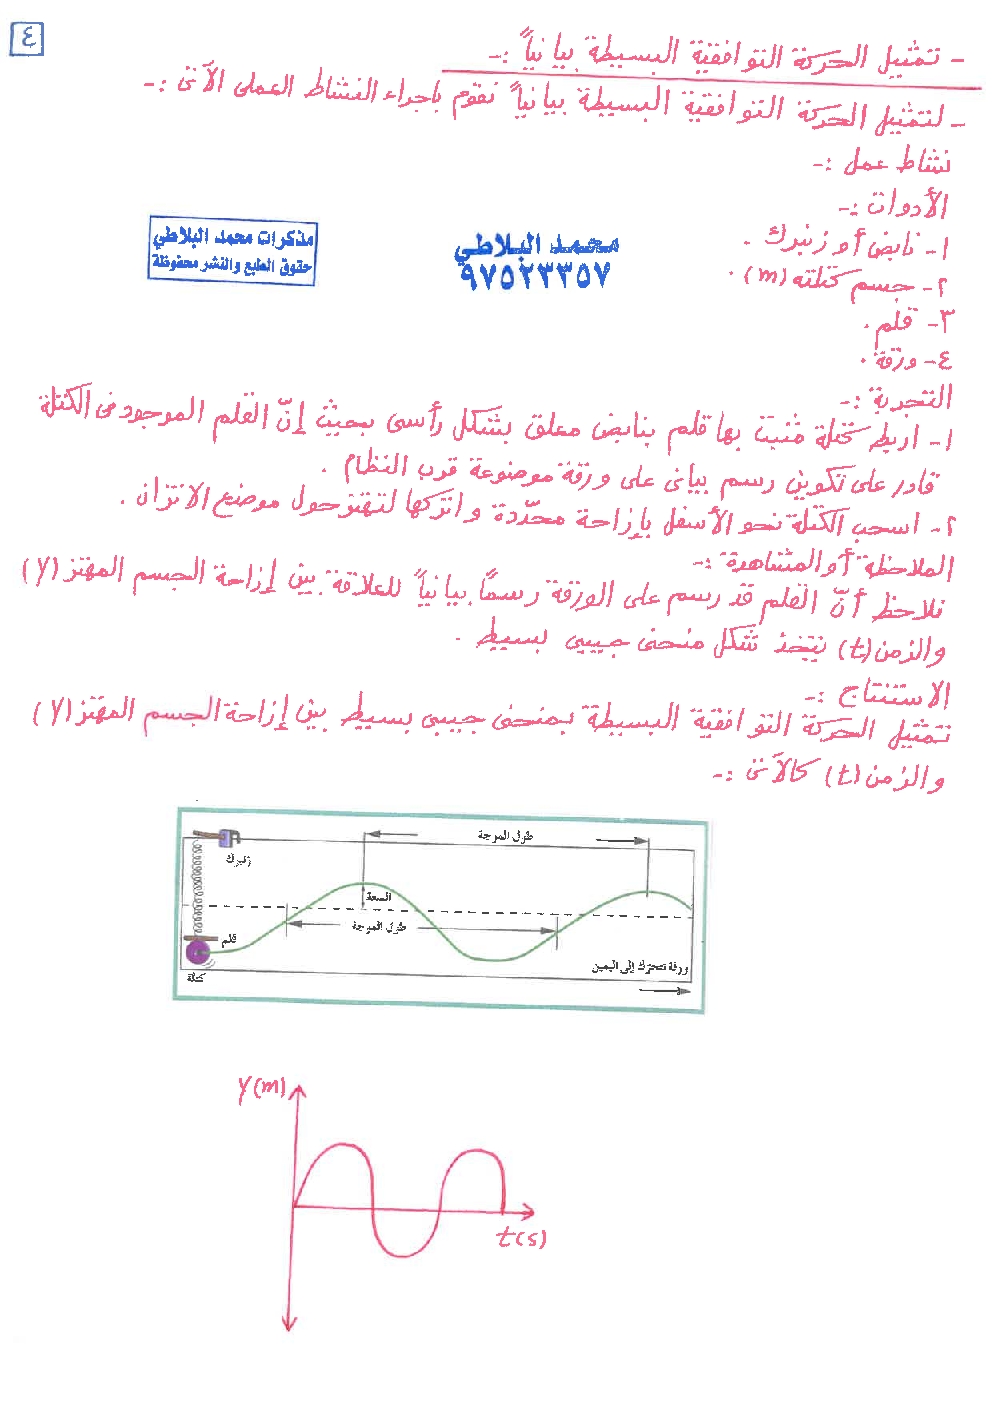 ٤
- تمثيل الحركة التوافقية البسيطة بيانياً :-
- لتمثيل الحركة التوافقية البسيطة بيانياً نقوم بإجراء النشاط العملى الآتى :-
نشاط عمل :-
الأدوات :-
١- نابض أو زنبرك .
٢- جسم كتلته (m) .
٣- قلم .
٤- ورقة .
مذكرات محمد البلاطي
حقوق الطبع والنشر محفوظة
محمد البلاطي
٩٧٥٢٣٣٥٧
التجربة :-
١- اربط كتلة مثبت بها قلم بنابض معلق بشكل رأسى بحيث إنّ القلم الموجود فى الكتلة
قادر على تكوين رسم بيانى على ورقة موضوعة قرب النظام .
٢- اسحب الكتلة نحو الأسفل بإزاحة محدّدة واتركها لتهتز حول موضع الاتزان .
الملاحظة أو المشاهدة :-
نلاحظ أنّ القلم قد رسم على الورقة رسماً بيانياً للعلاقة بين إزاحة الجسم المهتز (y)
والزمن (t) يتخذ شكل منحنى جيبى بسيط .
الاستنتاج :-
تمثيل الحركة التوافقية البسيطة بمنحنى جيبى بسيط بين إزاحة الجسم المهتز (y)
والزمن (t) كالآتى :-
طول الموجة
زنبرك
السعة
طول الموجة
قلم
ورقة تتحرك إلى اليمين
كتلة
y(m)
t(s)